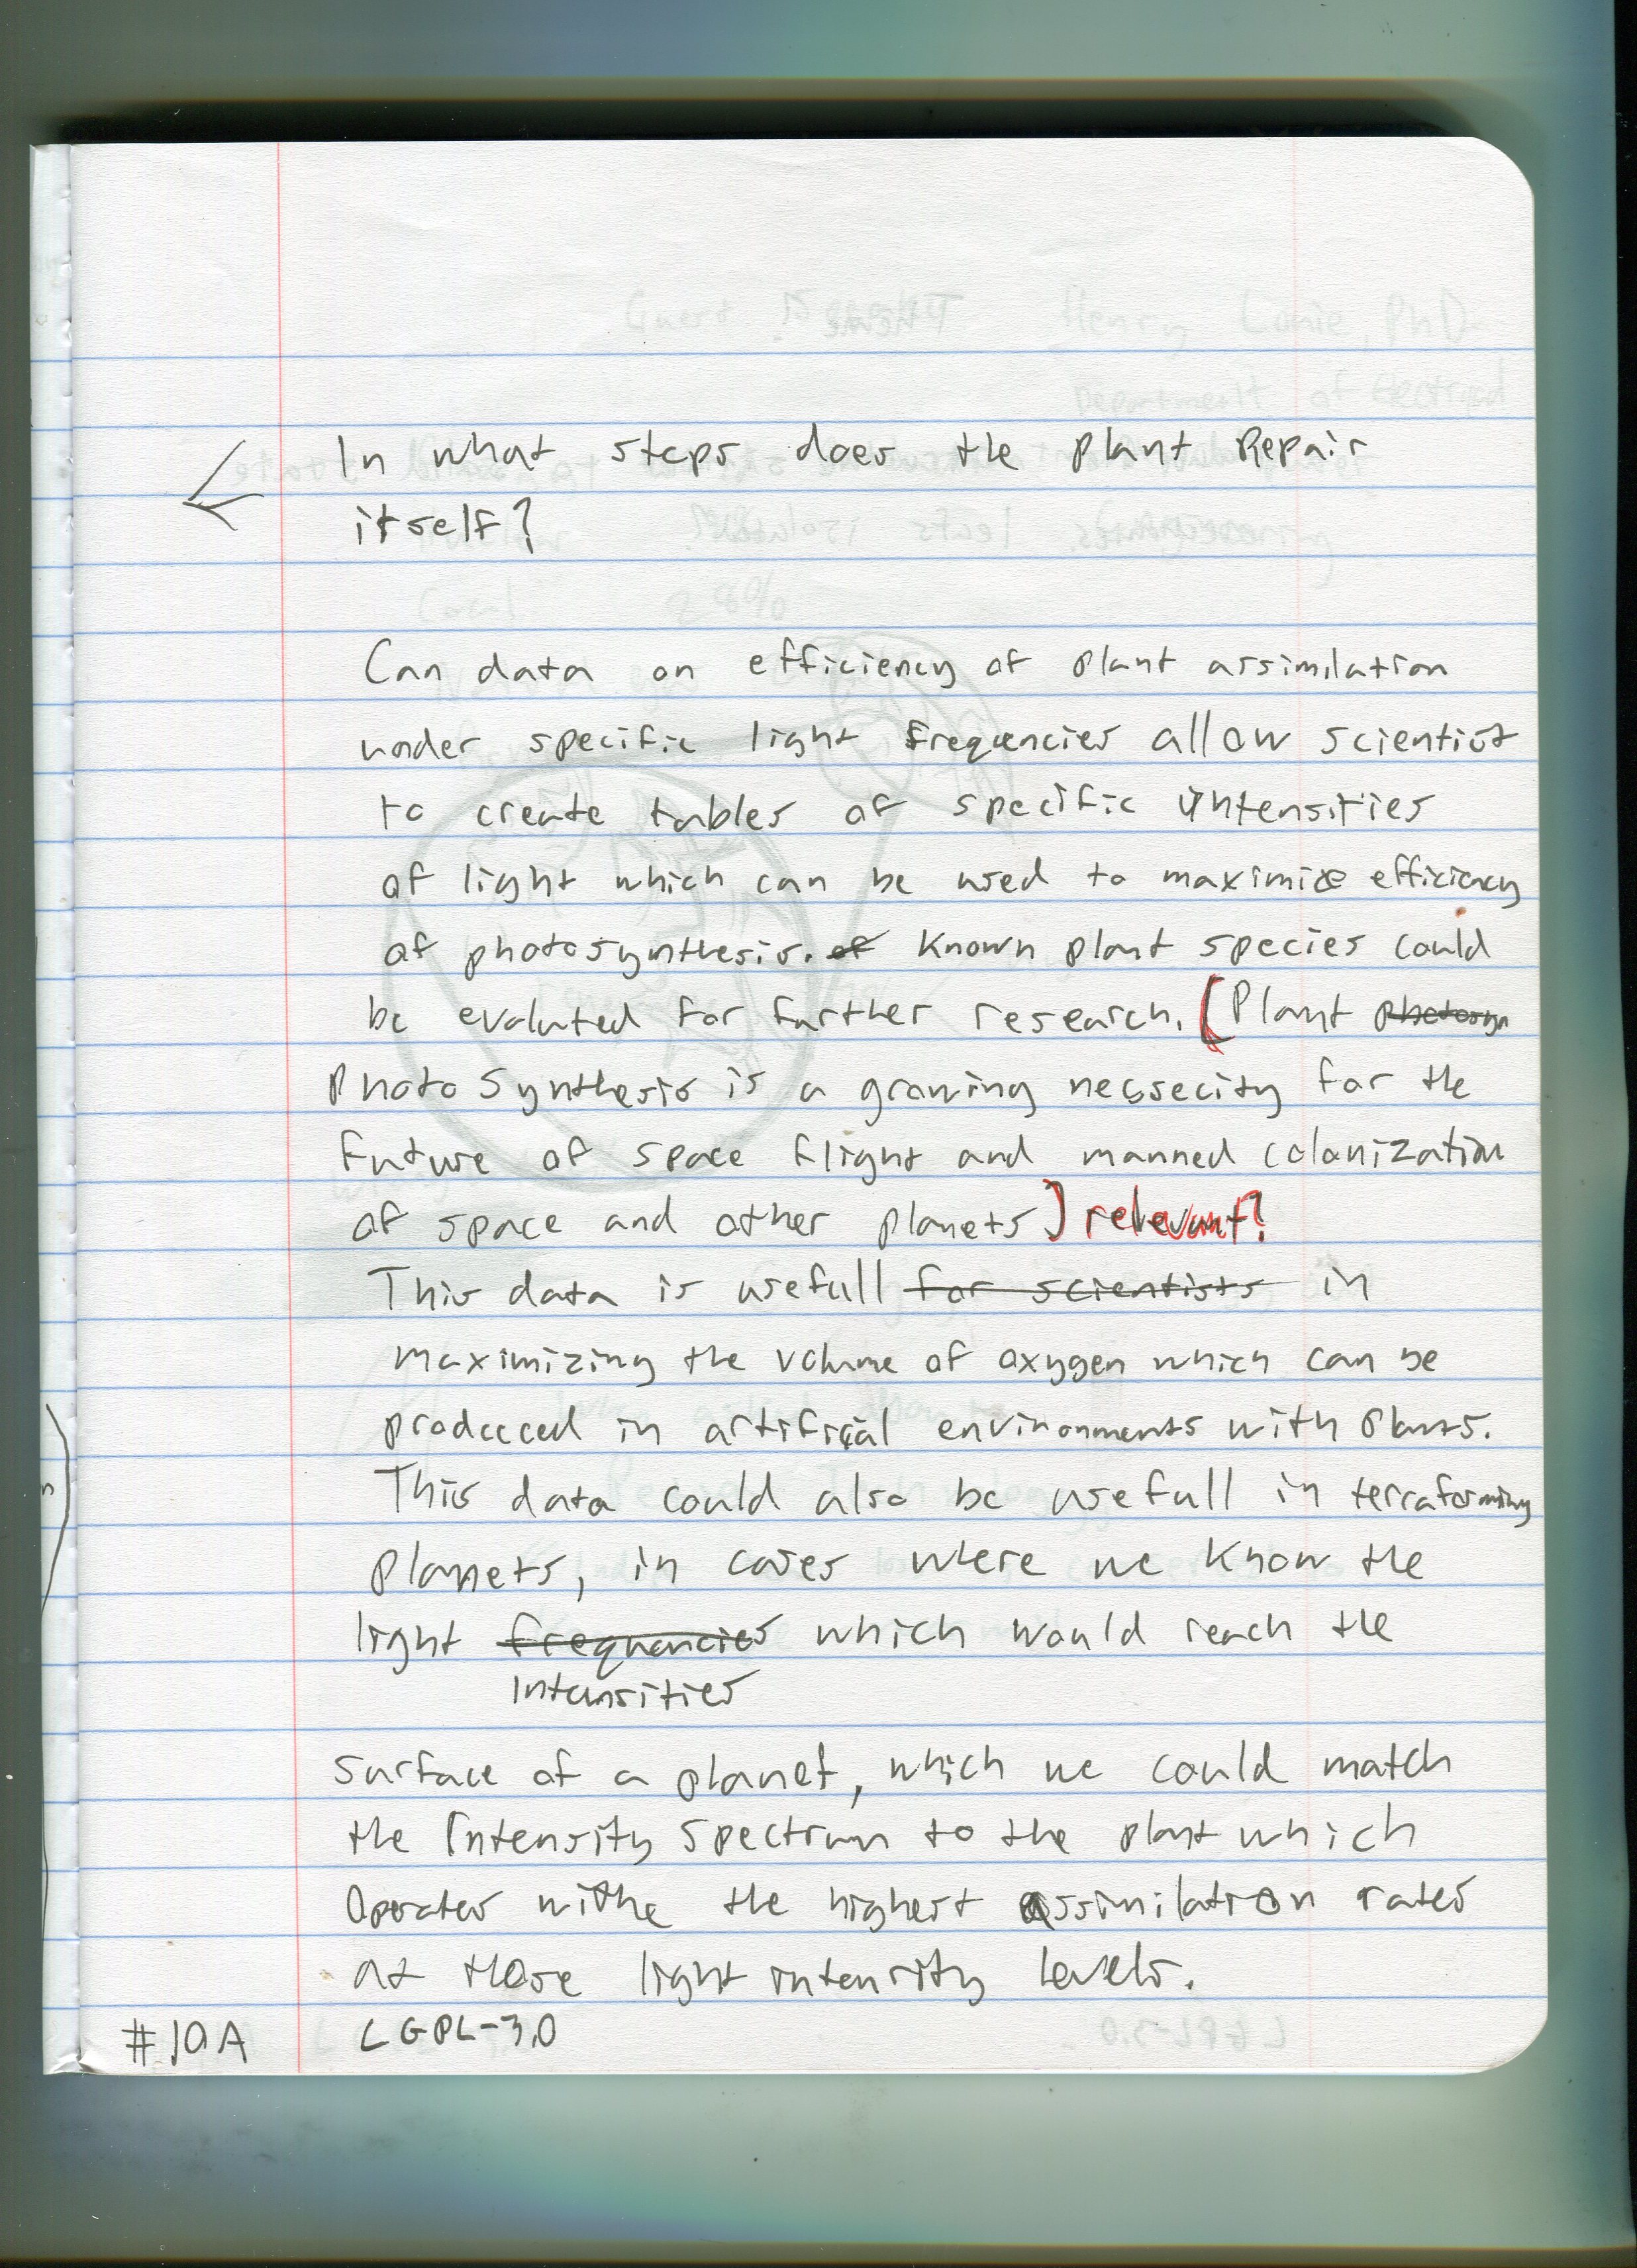 In what steps does the plant Repair
itself?
Can data on efficiency of plant assimilation
under specific light frequencies allow scientist
to create tables of specific intensities
of light which can be used to maximize efficiency
of photosynthesis. of Known plant species could
be evaluated for further research. [Plant photosyn
Photo Synthesis is a growing necssecity for the
future of space flight and manned colonization
of space and other planets] relevant?
This data is usefull for scientists in
maximizing the volume of oxygen which can be
produced in artificial environments with plants.
This data could also be usefull in terraforming
planets, in cases where we know the
light frequencies which would reach the
Intensities
surface of a planet, which we could match
the Intensity spectrum to the plant which
Operates withe the highest assimilation rates
at those light intensity levels.
#10A LGPL-3.0